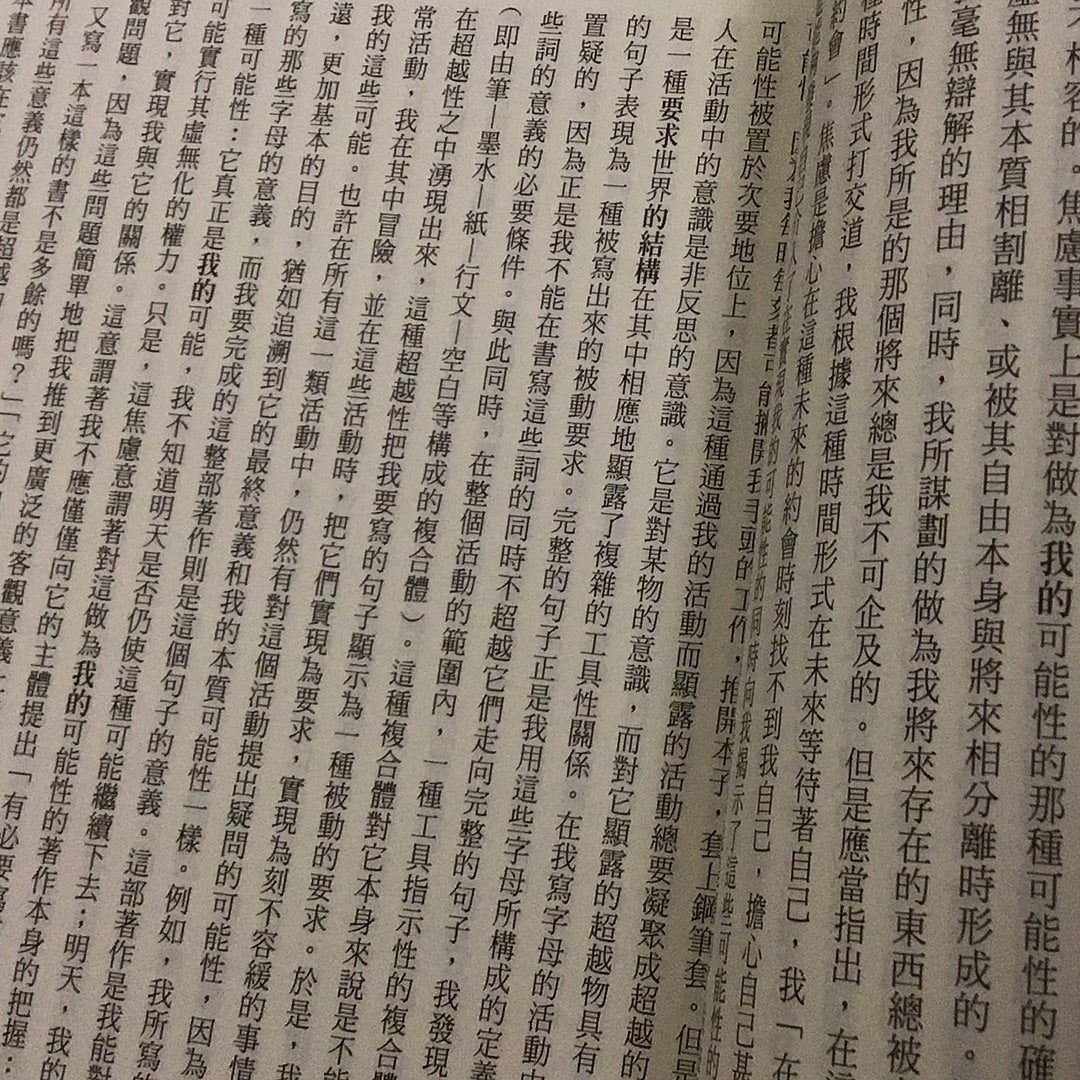 天相容的。焦慮事實上是對做為我的可能性的那種可能性的確
虛無與其本質相割離、或被其自由本身與將來相分離時形成的。
毫無辯解的理由，同時，我所謀劃的做為我將來存在的東西總被
性，因為我所是的那個將來總是我不可企及的。但是應當指出，在這
種時間形式打交道，我根據這種時間形式在未來等待著自己，我「在
約會」。焦慮是擔心在這種未來的約會時刻找不到我自己，擔心自己甚
了在實現我的可能性的同時向我揭示了這些可能性的
我每時每刻者可有捐得手頭的工作，推開本子，套上鋼筆套。但是
可能性被置於次要地位上，因為這種通過我的活動而顯露的活動總要凝聚成超越的
人在活動中的意識是非反思的意識。它是對某物的意識，而對它顯露的超越物具有
是一種要求世界的結構在其中相應地顯露了複雜的工具性關係。在我寫字母的活動中
的句子表現為一種被寫出來的被動要求。完整的句子正是我用這些字母所構成的定義
置疑的，因為正是我不能在書寫這些詞的同時不超越它們走向完整的句子，我發現
些詞的意義的必要條件。與此同時，在整個活動的範圍內，一種工具指示性的複合
（即由筆—墨水—紙—行文—空白等構成的複合體）。這種複合體對它本身來說是不能
在超越性之中湧現出來，這種超越性把我要寫的句子顯示為一種被動的要求。於是，我
常活動，我在其中冒險，並在這些活動時，把它們實現為要求，實現為刻不容緩的事情
我的這些可能。也許在所有這一類活動中，仍然有對這個活動提出疑問的可能性，因為
遠，更加基本的目的，猶如追溯到它的最終意義和我的本質可能性一樣。例如，我所寫的
寫的那些字母的意義，而我要完成的這整部著作則是這個句子的意義。這部著作是我能對
一種可能性：它真正是我的可能，我不知道明天是否仍使這種可能繼續下去；明天，我的
可能實行其虛無化的權力。只是，這焦慮意謂著對這做為我的可能性的著作本身的把握：
對它，實現我與它的關係。這意謂著我不應僅僅向它的主體提出「有必要寫
觀問題，因為這些問題簡單地把我推到更廣泛的客觀意義
又寫一本這樣的書不是多餘的嗎？」「它的
所有這些意義仍然都是超越
本書應該在